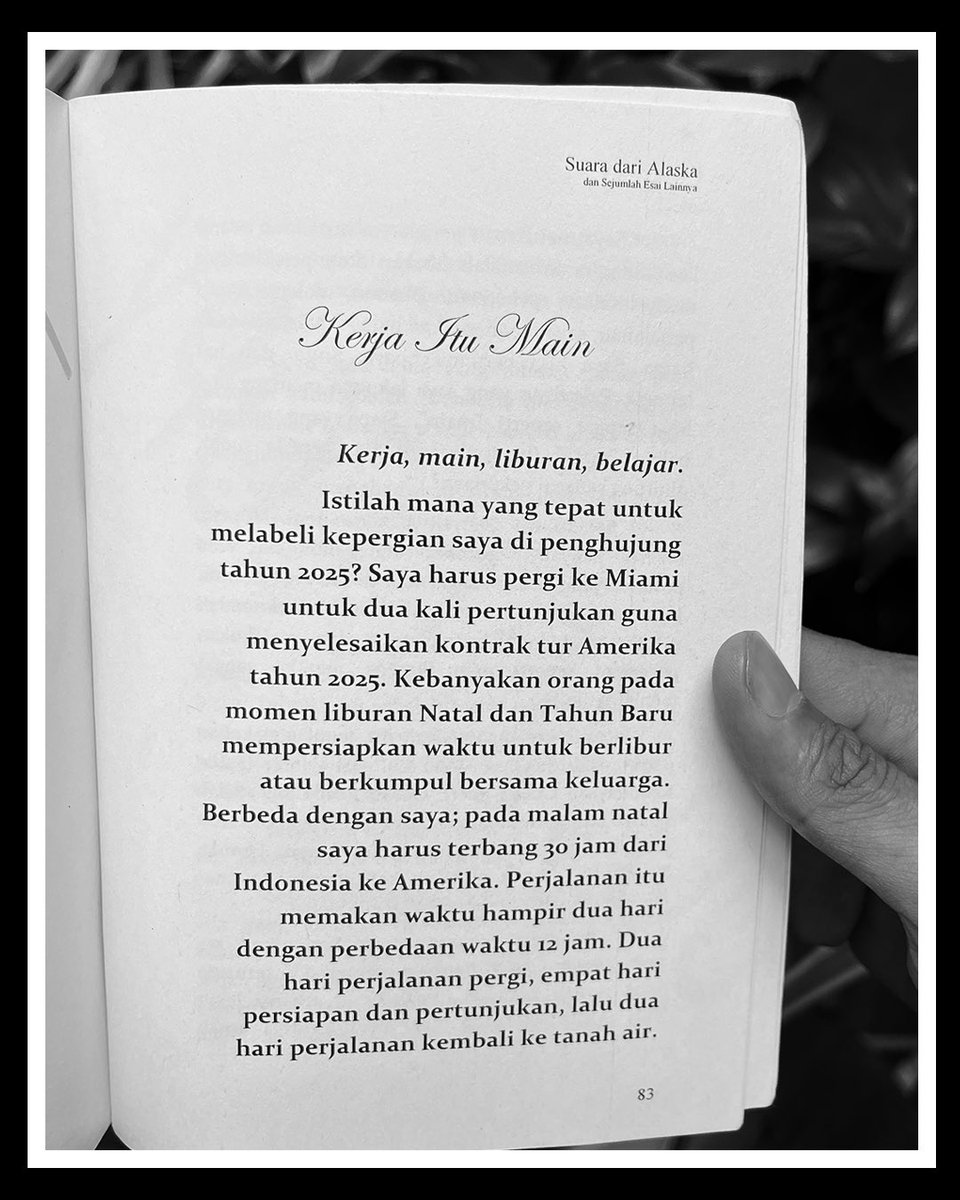 Suara dari Alaska
dan Sejumlah Esai Lainnya
Kerja Itu Main
Kerja, main, liburan, belajar.
Istilah mana yang tepat untuk
melabeli kepergian saya di penghujung
tahun 2025? Saya harus pergi ke Miami
untuk dua kali pertunjukan guna
menyelesaikan kontrak tur Amerika
tahun 2025. Kebanyakan orang pada
momen liburan Natal dan Tahun Baru
mempersiapkan waktu untuk berlibur
atau berkumpul bersama keluarga.
Berbeda dengan saya; pada malam natal
saya harus terbang 30 jam dari
Indonesia ke Amerika. Perjalanan itu
memakan waktu hampir dua hari
dengan perbedaan waktu 12 jam. Dua
hari perjalanan pergi, empat hari
persiapan dan pertunjukan, lalu dua
hari perjalanan kembali ke tanah air.
83